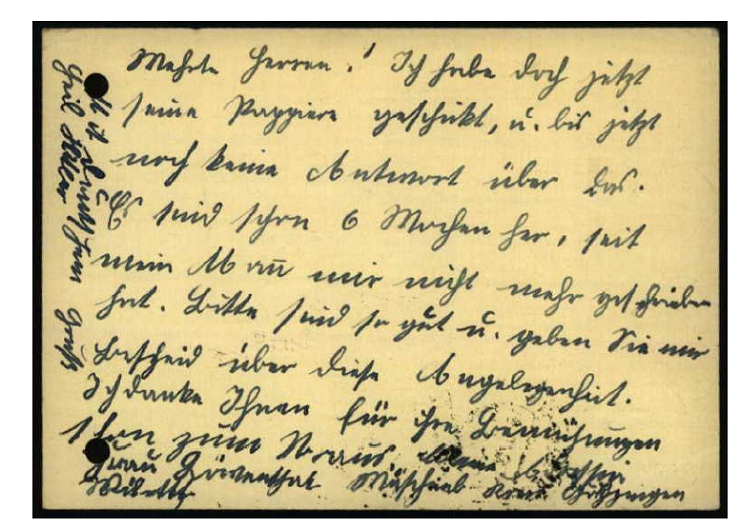 Wehrte Herren! Ich habe doch jetzt
seine Pappiere geschickt, u. bis jetzt
noch keine Antwort über das.
Es sind schon 6 Wochen her, seit
mein Mann mir nicht mehr geschrieben
hat. Bitte sind so gut u. geben Sie mir
Bescheid über diese Angelegenheit.
Ich danke Ihnen für ihre Bemühungen
schon zum Voraus
Frau
Mit Deutschem Gruß
Heil Hitler